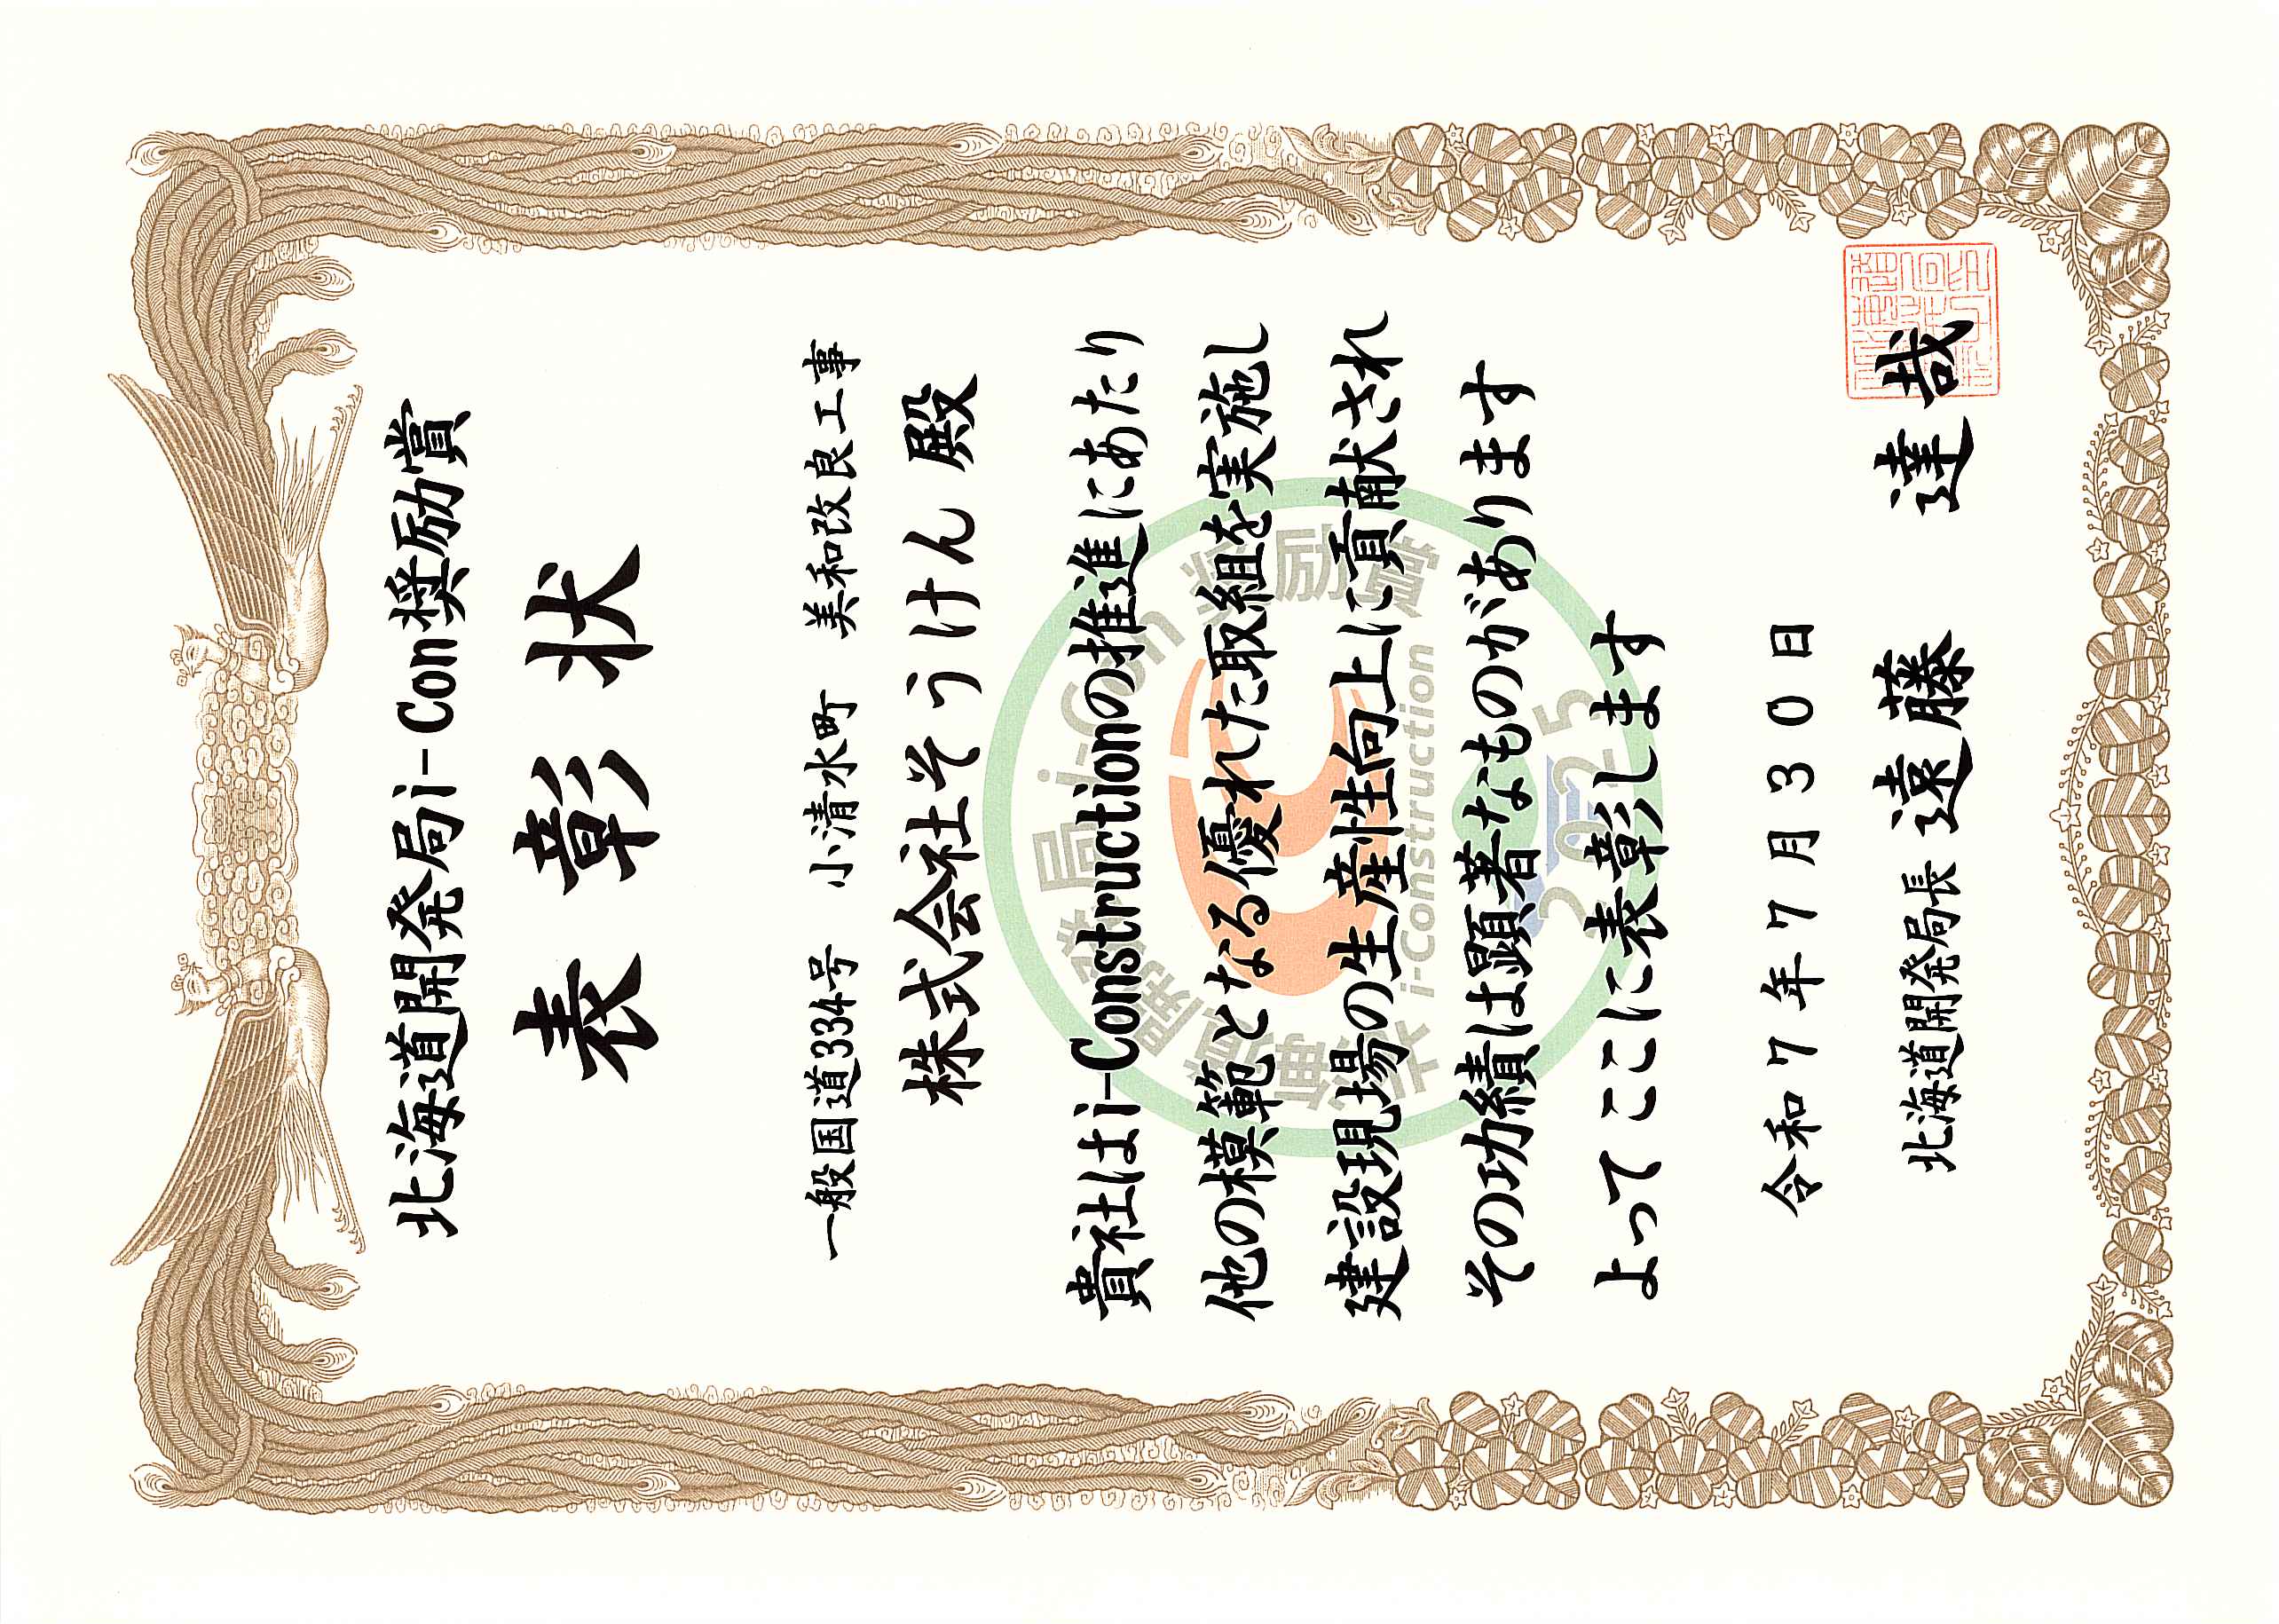 北海道開発局i-Con奨励賞
表彰状
一般国道334号 小清水町 美和改良工事
株式会社そうけん 殿
貴社はi-Constructionの推進にあたり
他の模範となる優れた取組を実施し
建設現場の生産性向上に貢献され
その功績は顕著なものがあります
よってここに表彰します
令和7年7月30日
北海道開発局長 遠藤 達哉
北海道開発局i-Con奨励賞
i-Construction
2025